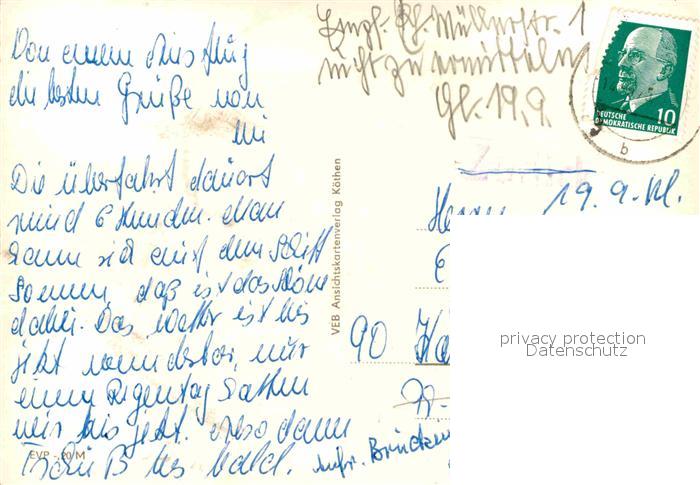 Von einem Ausflug
die besten Grüße von
Die Überfahrt dauert
rund 6 Stunden. Man
kann sich auf dem Schiff
Sonnen, daß ist das Schöne
dabei. Das Wetter ist bis
jetzt wunderbar, nur
einen Regentag hatten
wir bis jetzt. Also dann
Tschüß bis bald.
EVP -.20 M
VEB Ansichtskartenverlag Köthen
Empf. Müllerstr. 1
nicht zu ermitteln
19.9.
10
DEUTSCHE
DEMOKRATISCHE REPUBLIK
b
19.9.
Herrn
90
privacy protection
Datenschutz